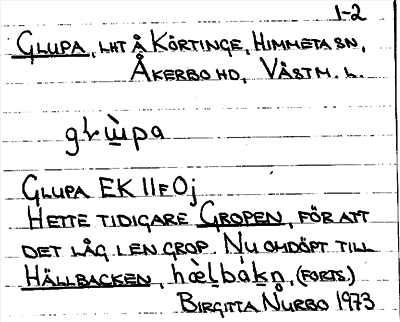 1-2
GLUPA, LHT Å KÖRTINGE, HIMMETA SN,
ÅKERBO HD, VÄSTM. L.
GLUPA EK 11F 0j
HETTE TIDIGARE GROPEN, FÖR ATT
DET LÅG I EN GROP. NU OMDÖPT TILL
HÄLLBACKEN, (FORTS.)
BIRGITTA NURBO 1973